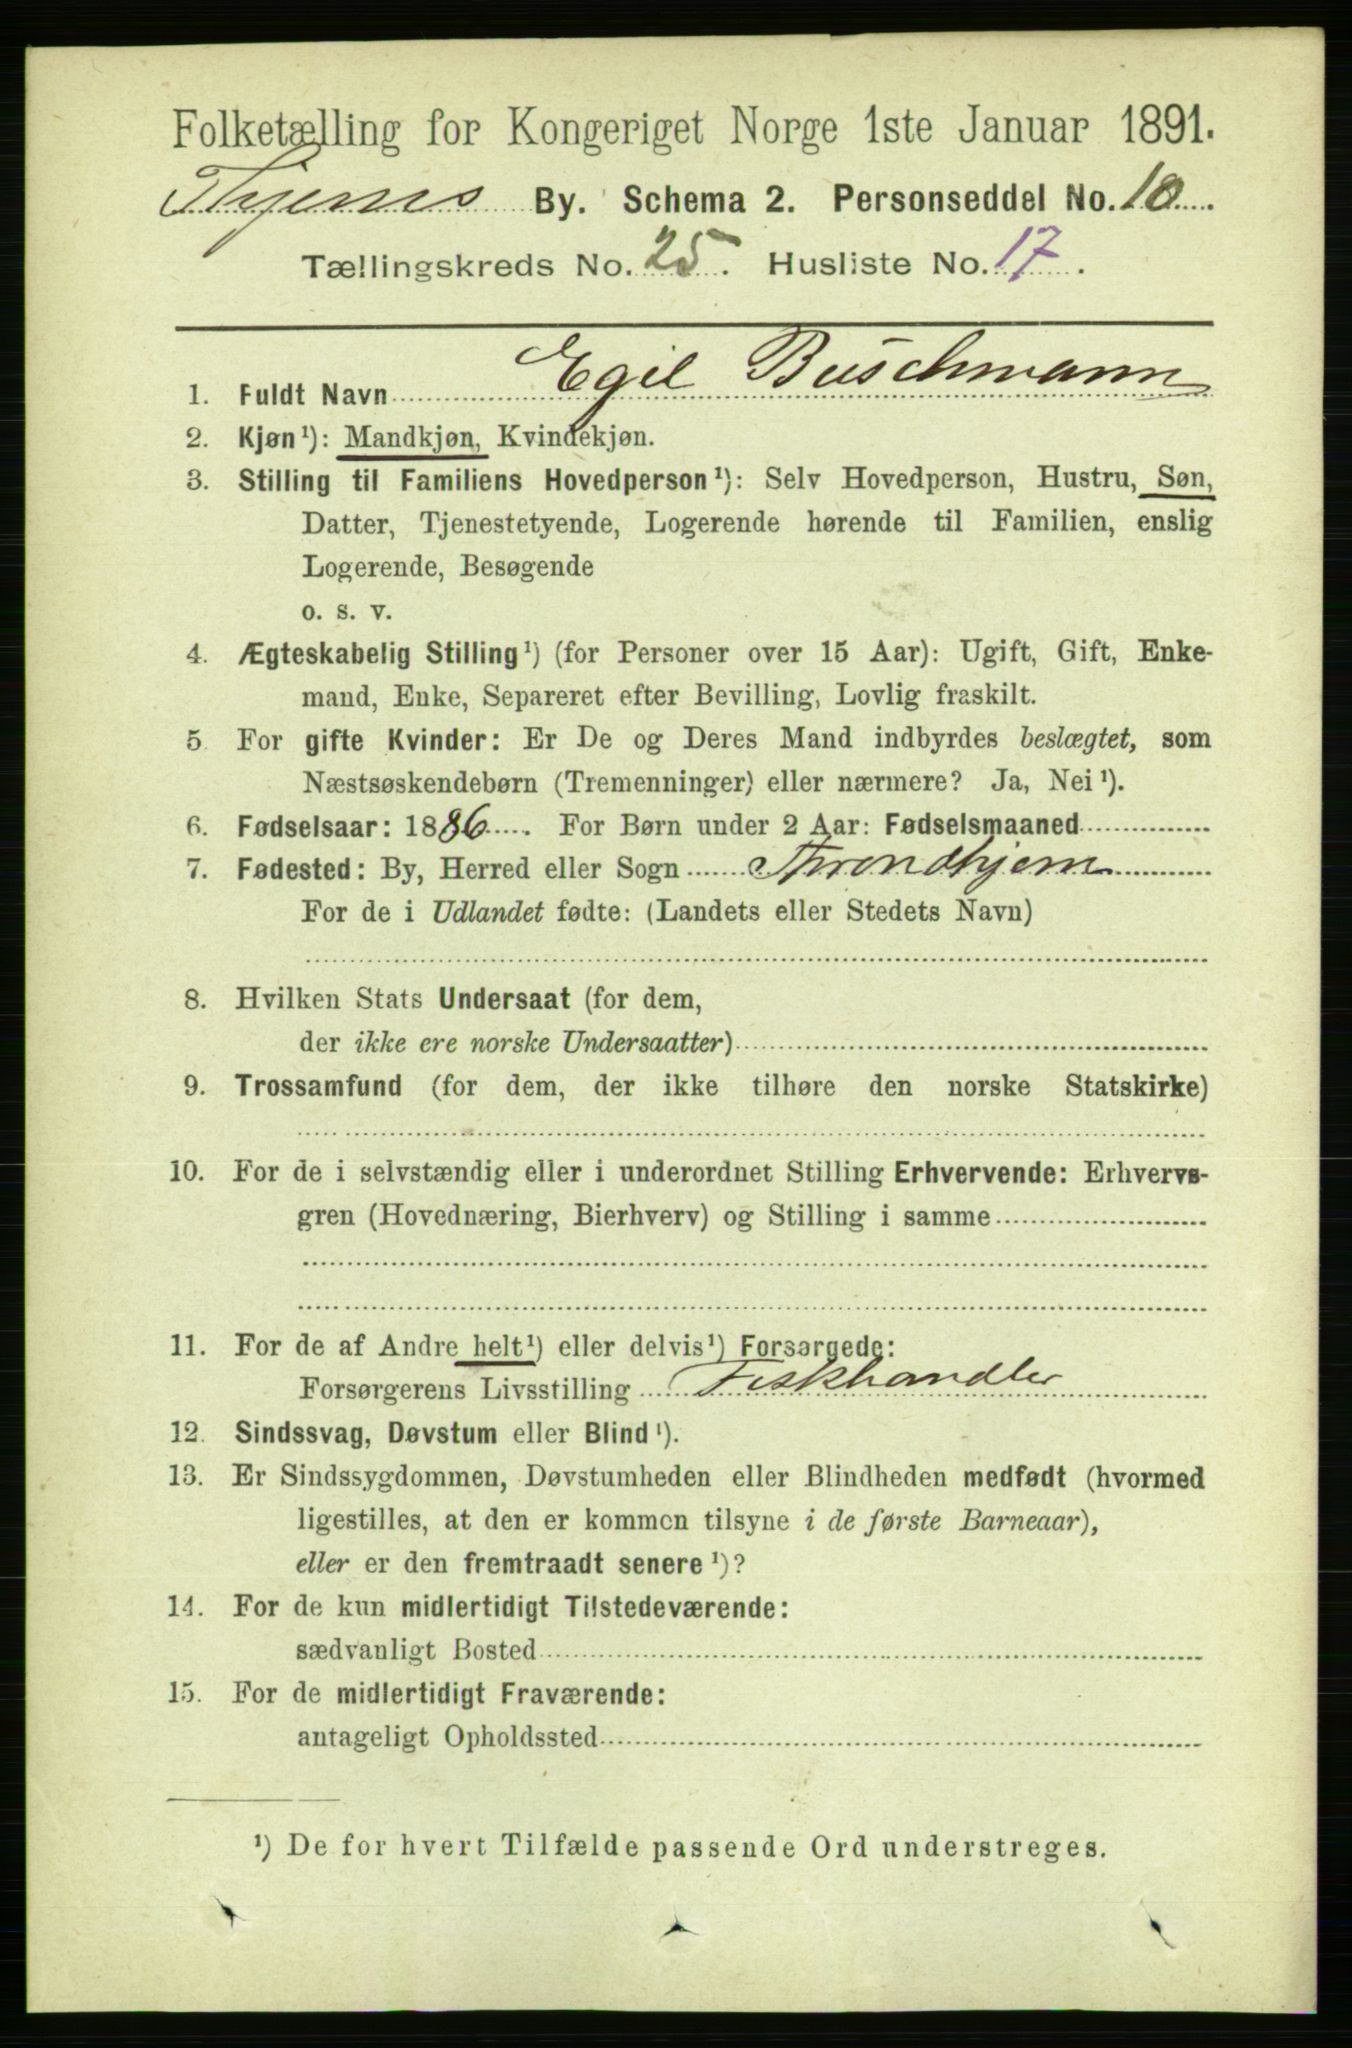 Folketælling for Kongeriget Norge 1ste Januar 1891.
Thjems By. Schema 2. Personseddel No. 10
Tællingskreds No. 25. Husliste No. 17.
1. Fuldt Navn Egil Buschmann
2. Kjøn¹): Mandkjøn, Kvindekjøn.
3. Stilling til Familiens Hovedperson¹): Selv Hovedperson, Hustru, Søn,
Datter, Tjenestetyende, Logerende hørende til Familien, enslig
Logerende, Besøgende
o. s. v.
4. Ægteskabelig Stilling¹) (for Personer over 15 Aar): Ugift, Gift, Enke-
mand, Enke, Separeret efter Bevilling, Lovlig fraskilt.
5 For gifte Kvinder: Er De og Deres Mand indbyrdes beslægtet, som
Næstsøskendebørn (Tremenninger) eller nærmere? Ja, Nei¹).
6. Fødselsaar: 1886. For Børn under 2 Aar: Fødselsmaaned
7. Fødested: By, Herred eller Sogn Throndhjem
For de i Udlandet fødte: (Landets eller Stedets Navn)
8. Hvilken Stats Undersaat (for dem,
der ikke ere norske Undersaatter)
9. Trossamfund (for dem, der ikke tilhøre den norske Statskirke)
10. For de i selvstændig eller i underordnet Stilling Erhvervende: Erhvervs-
gren (Hovednæring, Bierhverv) og Stilling i samme
11. For de af Andre helt¹) eller delvis¹) Forsørgede:
Forsørgerens Livsstilling Fiskhandler
12. Sindssvag, Døvstum eller Blind¹).
13. Er Sindssygdommen, Døvstumheden eller Blindheden medfødt (hvormed
ligestilles, at den er kommen tilsyne i de første Barneaar),
eller er den fremtraadt senere¹)?
14. For de kun midlertidigt Tilstedeværende:
sædvanligt Bosted
15. For de midlertidigt Fraværende:
antageligt Opholdssted
¹) De for hvert Tilfælde passende Ord understreges.